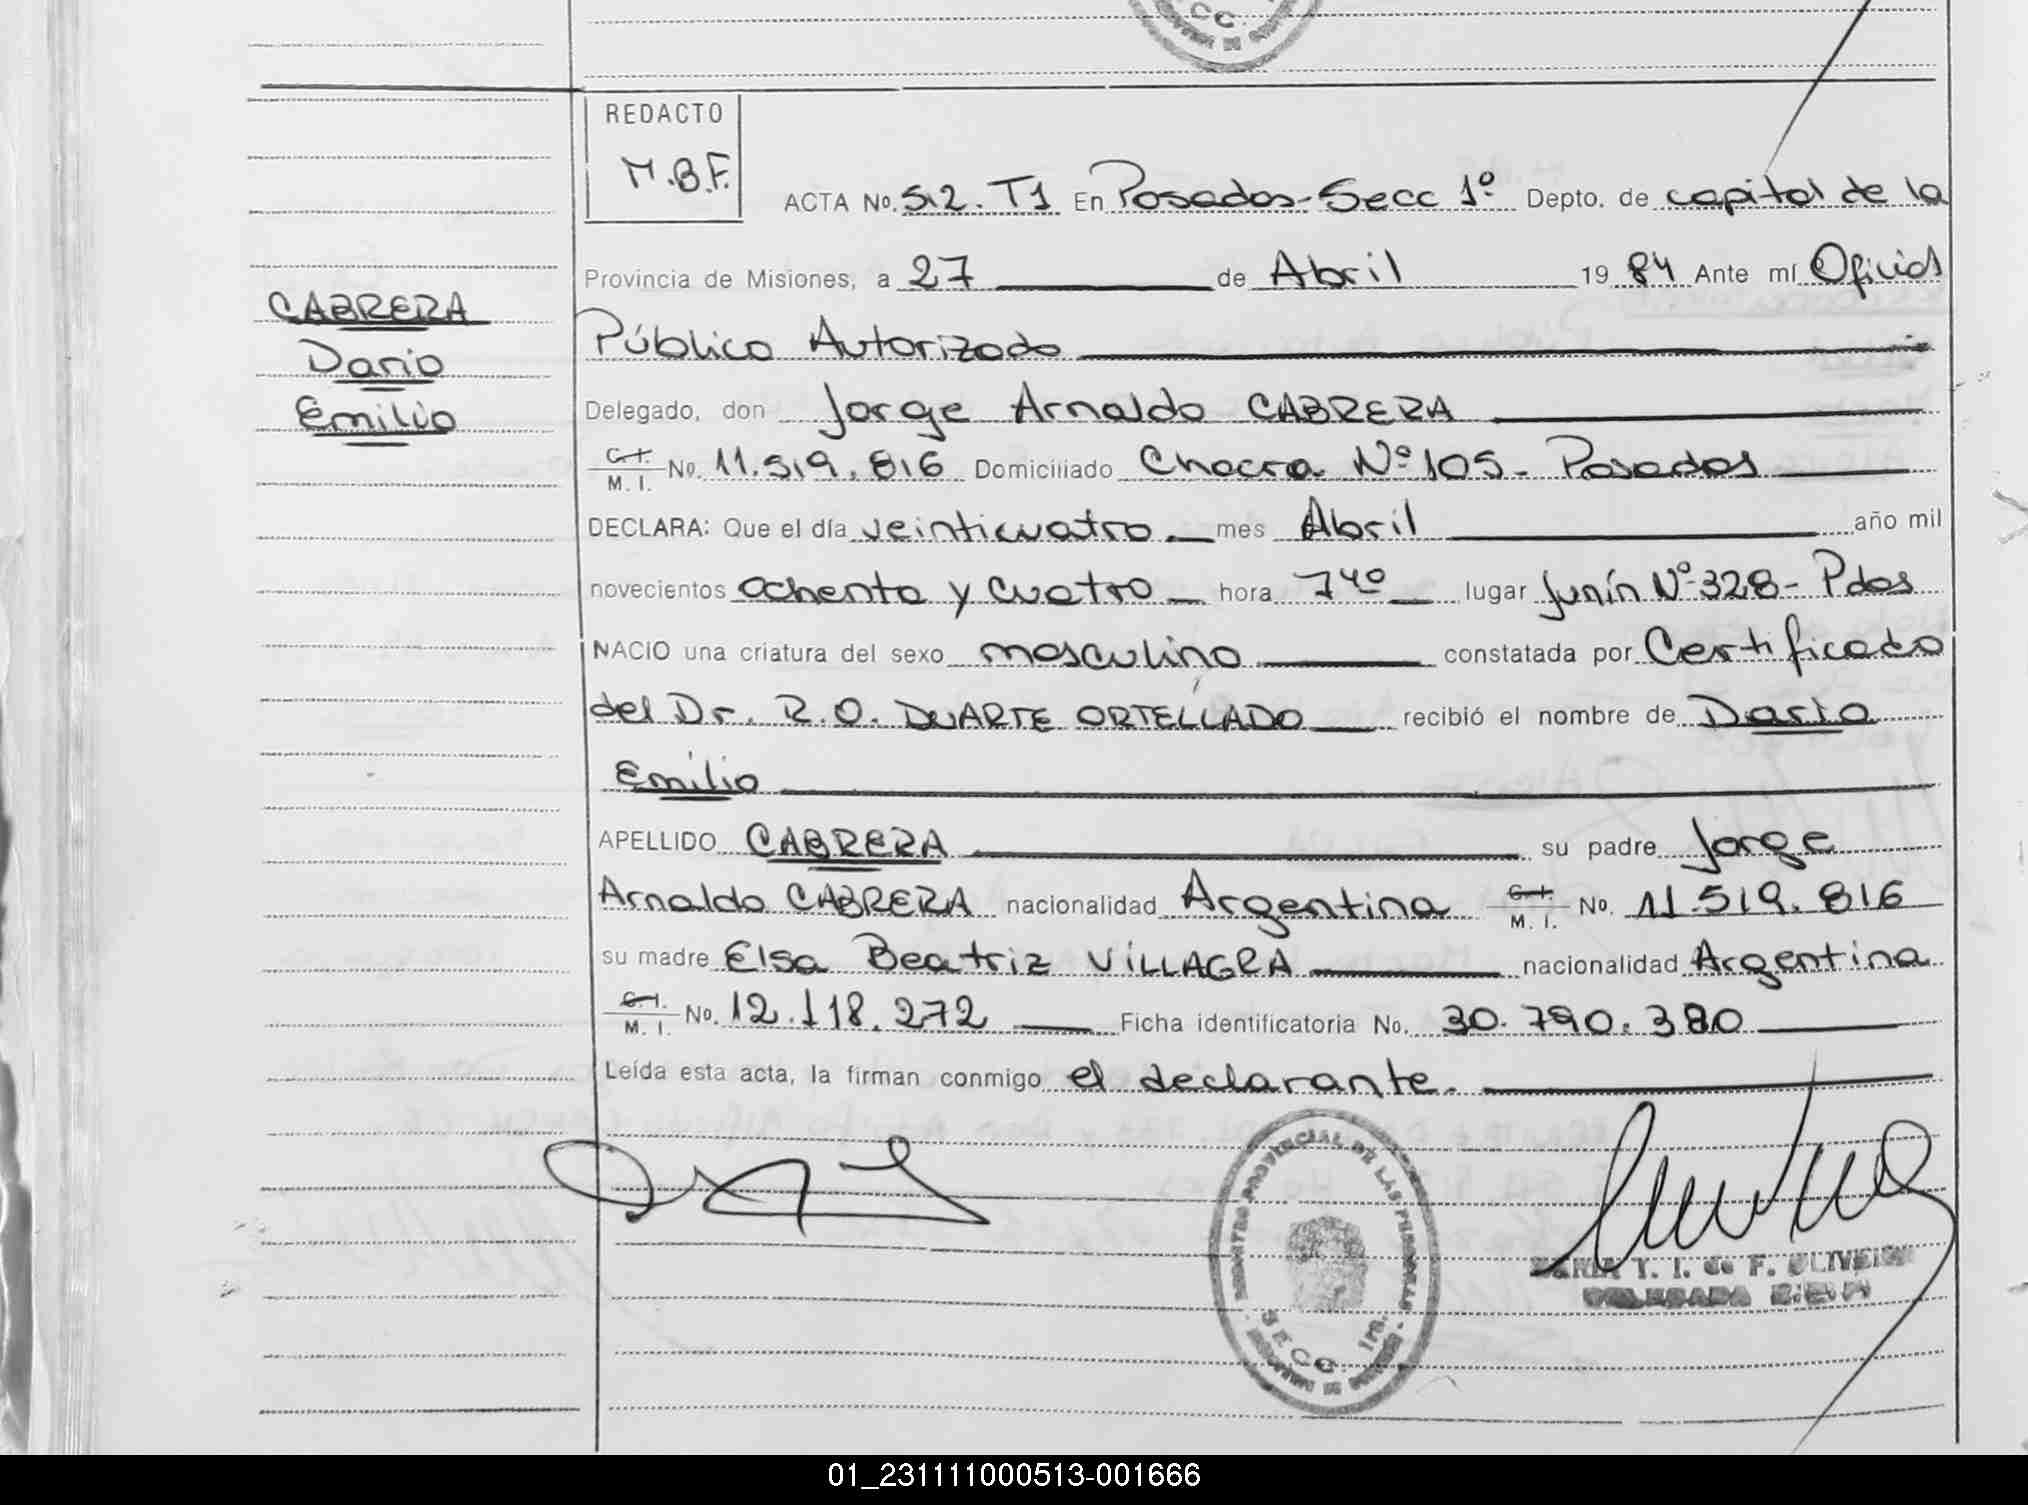 REDACTO
M.B.F.
ACTA No. 512. T1 En Posadas-Secc 1º Depto. de capital de la
Provincia de Misiones, a 27 de Abril 19 84 Ante mí Oficial
Público Autorizado
Delegado, don Jorge Arnaldo CABRERA
C.I. M. I. No. 11.519.816 Domiciliado Chacra Nº 105- Posadas
DECLARA: Que el día veinticuatro mes Abril año mil
novecientos ochenta y cuatro hora 7⁴⁰ lugar Junín Nº 328- Pdas
NACIO una criatura del sexo masculino constatada por Certificado
del Dr. R.O. DUARTE ORTELLADO recibió el nombre de Dario
Emilio
APELLIDO CABRERA su padre Jorge
Arnaldo CABRERA nacionalidad Argentina C.I. M. I. No. 11.519.816
su madre Elsa Beatriz VILLAGRA nacionalidad Argentina
C.I. M. I. No. 12.118.272 Ficha identificatoria No. 30.790.380
Leída esta acta, la firman conmigo el declarante.
CABRERA
Dario
Emilio
REGISTRO PROVINCIAL DE LAS PERSONAS
SECC. 1ra.
MARIA T. I. de F. OLIVEIRA
DELEGADA
01_231111000513-001666